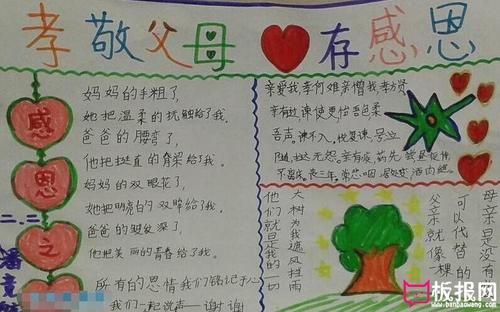 孝敬父母 存感恩
感
恩
之
二.二
妈妈的手粗了,
她把温柔的抚触给了我。
爸爸的腰弯了,
他把挺直的脊梁给了我。
妈妈的双眼花了,
她把明亮的双眸给了我。
爸爸的皱纹深了,
他把美丽的青春给了我。
所有的恩情我们铭记于心
我们一起说声一谢谢
亲爱我孝何难亲憎我孝方贤
亲有过谏使更怡吾色柔
吾声,谏不入,悦复谏,号泣
随,挞无怨,亲有疾,药先尝昼夜侍
不离床,丧三年,常悲咽,居处变酒肉绝。
母亲是没有
可以代替的
父亲就像一棵
大树为我遮风挡雨
他们就是我的一切
板报网
www.banbaowang.com